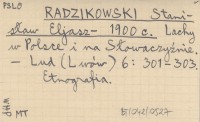 PSŁO
RADZIKOWSKI Stani-
sław Eljasz- 1900 c. Lachy
w Polsce i na Słowaczyźnie.
- Lud (Lwów) 6: 301-303.
Etnografia.
MT